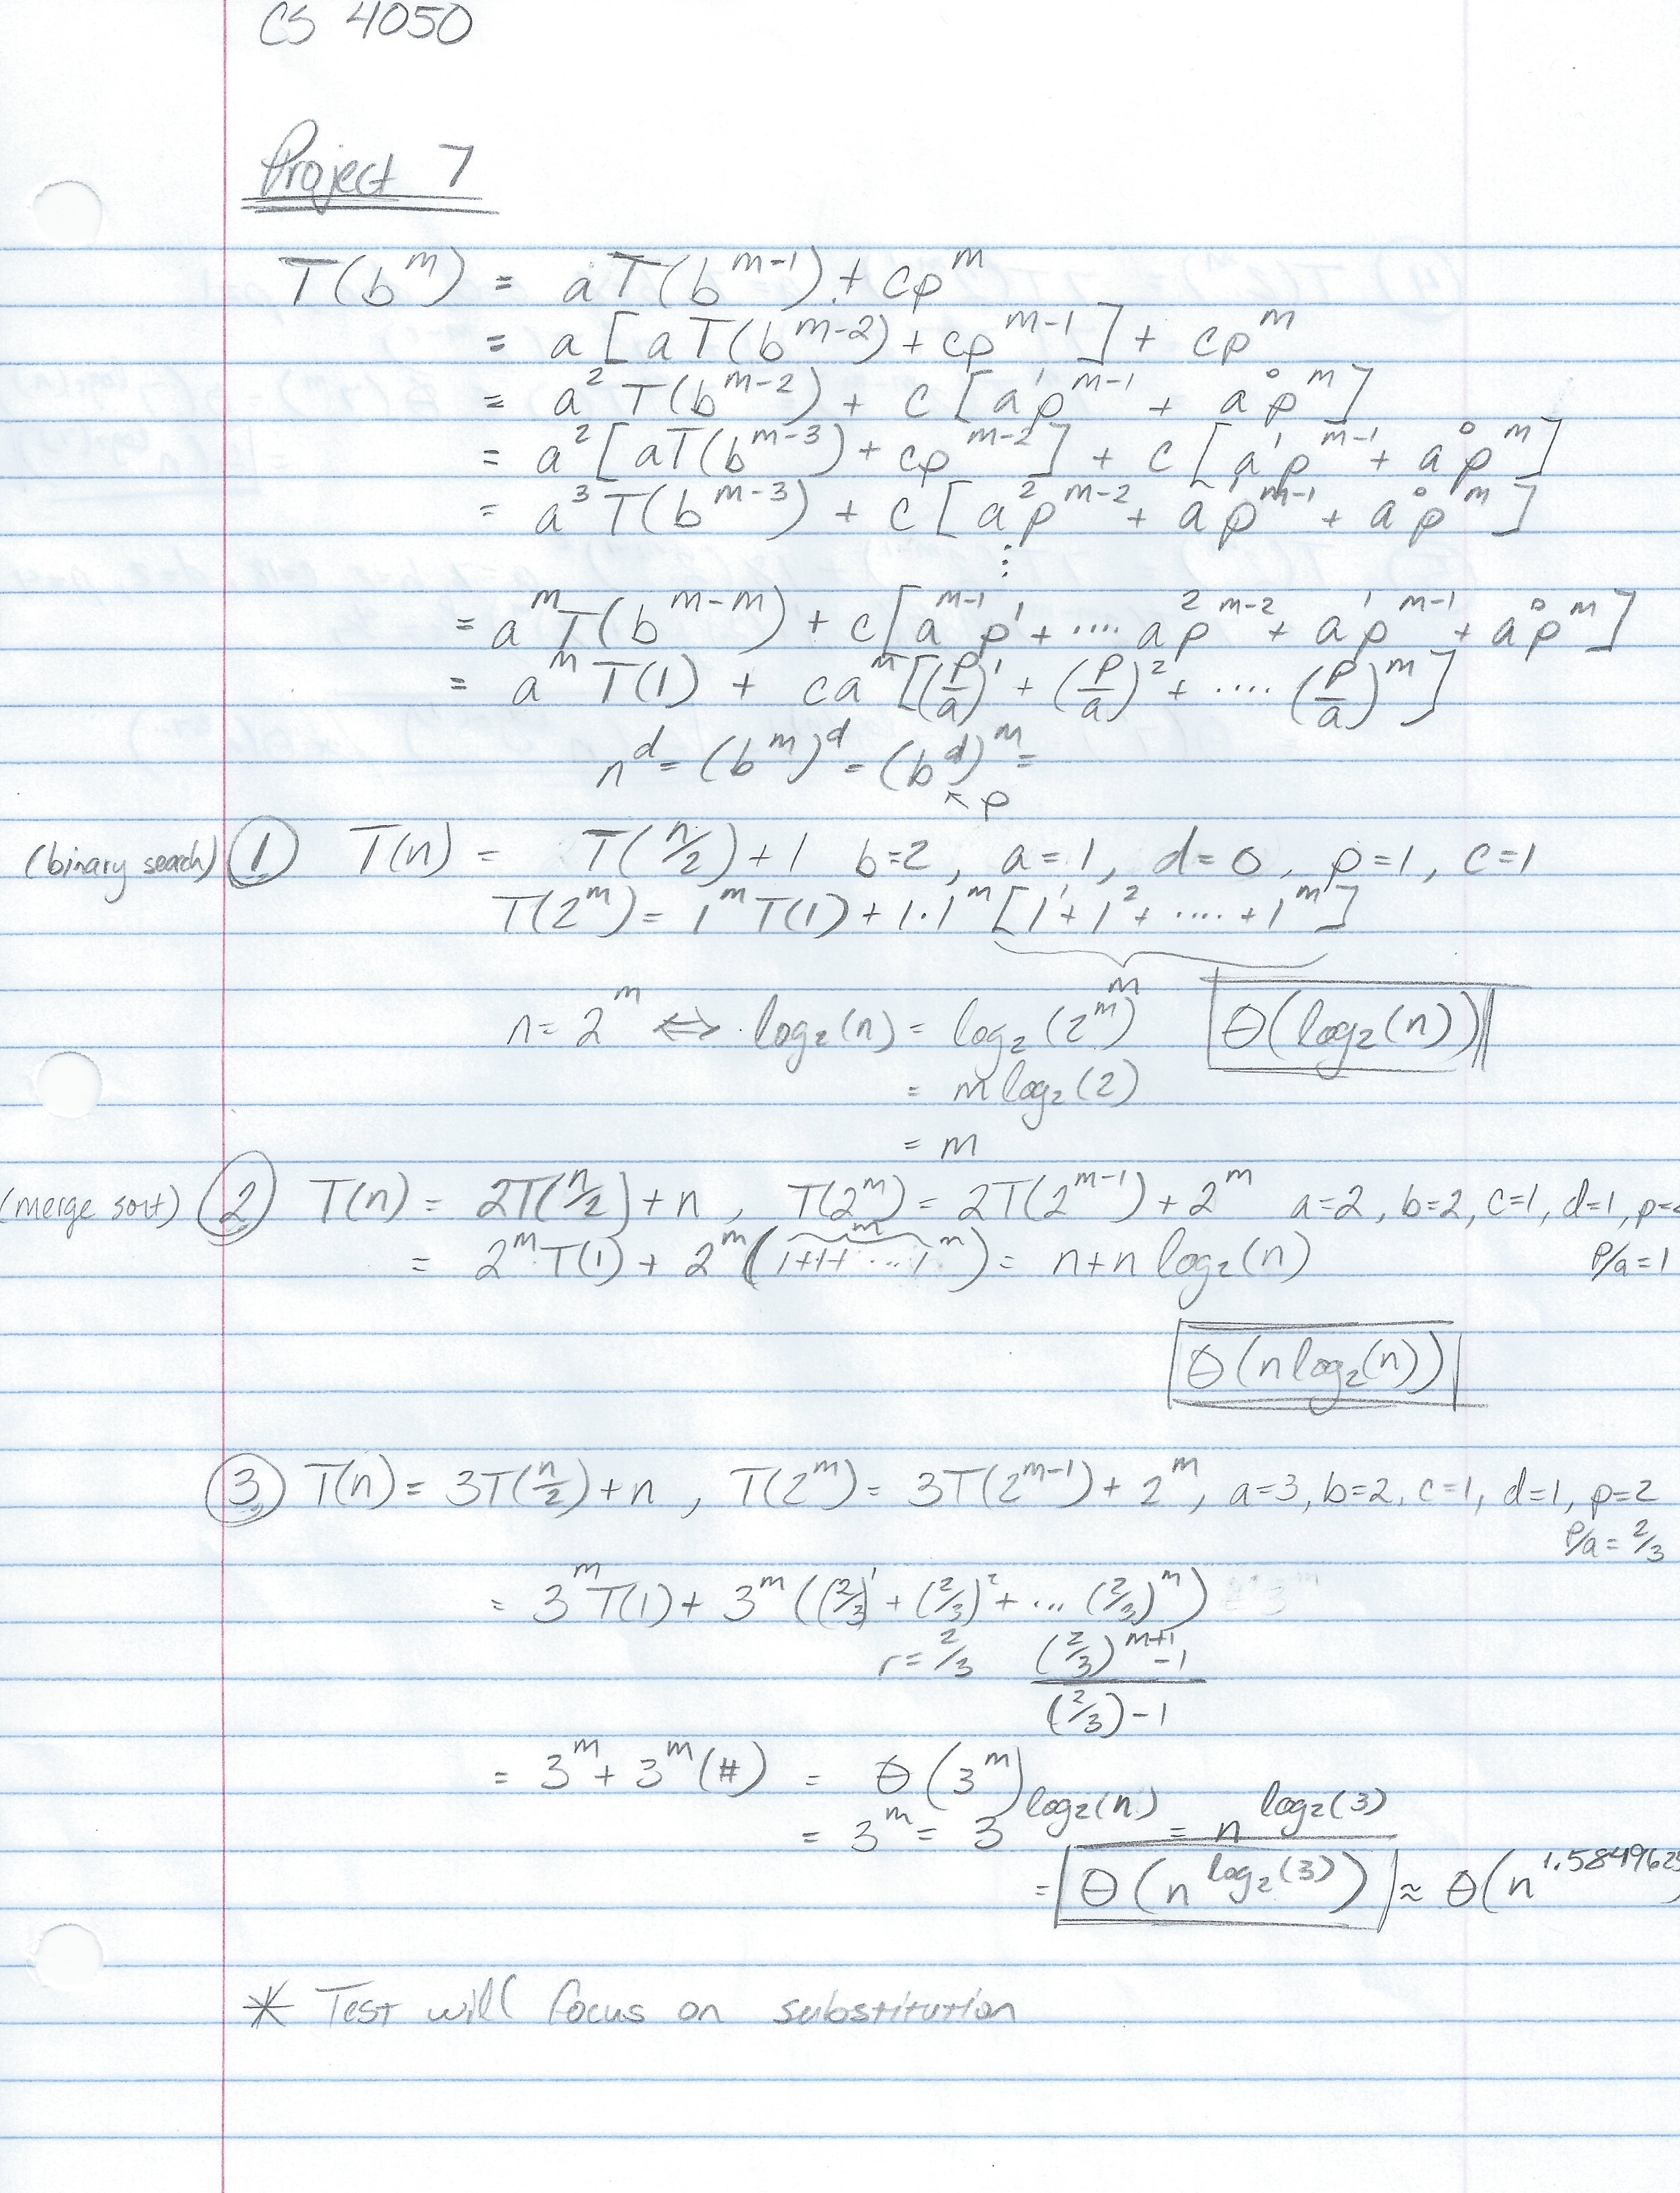 CS 4050
Project 7
T(b^m) = aT(b^{m-1}) + cp^m
= a[aT(b^{m-2}) + cp^{m-1}] + cp^m
= a^2 T(b^{m-2}) + c[a^1 p^{m-1} + a^0 p^m]
= a^2[aT(b^{m-3}) + cp^{m-2}] + c[a^1 p^{m-1} + a^0 p^m]
= a^3 T(b^{m-3}) + c[a^2 p^{m-2} + a p^{m-1} + a^0 p^m]
⋮
= a^m T(b^{m-m}) + c[a^{m-1} p^1 + .... a^2 p^{m-2} + a^1 p^{m-1} + a^0 p^m]
= a^m T(1) + ca^m[(p/a)^1 + (p/a)^2 + .... (p/a)^m]
n^d = (b^m)^d = (b^d)^m =
↖ p
(binary seach) ① T(n) = T(n/2) + 1 b=2, a=1, d=0, p=1, c=1
T(2^m) = 1^m T(1) + 1·1^m [1^1 + 1^2 + .... + 1^m]
m
n = 2^m ⟺ log₂(n) = log₂(2^m) Θ(log₂(n))
= m log₂(2)
= m
(merge sort) ② T(n) = 2T(n/2) + n, T(2^m) = 2T(2^{m-1}) + 2^m a=2, b=2, c=1, d=1, p=2
= 2^m T(1) + 2^m (1+1+ ... 1^m) = n + n log₂(n) P/a = 1
m
Θ(n log₂(n))
③ T(n) = 3T(n/2) + n, T(2^m) = 3T(2^{m-1}) + 2^m, a=3, b=2, c=1, d=1, p=2
P/a = 2/3
= 3^m T(1) + 3^m ((2/3)^1 + (2/3)^2 + ... (2/3)^m)
r = 2/3 ((2/3)^{m+1} - 1) / ((2/3) - 1)
= 3^m + 3^m (#) = Θ(3^m)
= 3^m = 3^{log₂(n)} = n^{log₂(3)}
= Θ(n^{log₂(3)}) ≈ Θ(n^{1.5849625})
* Test will focus on substitution